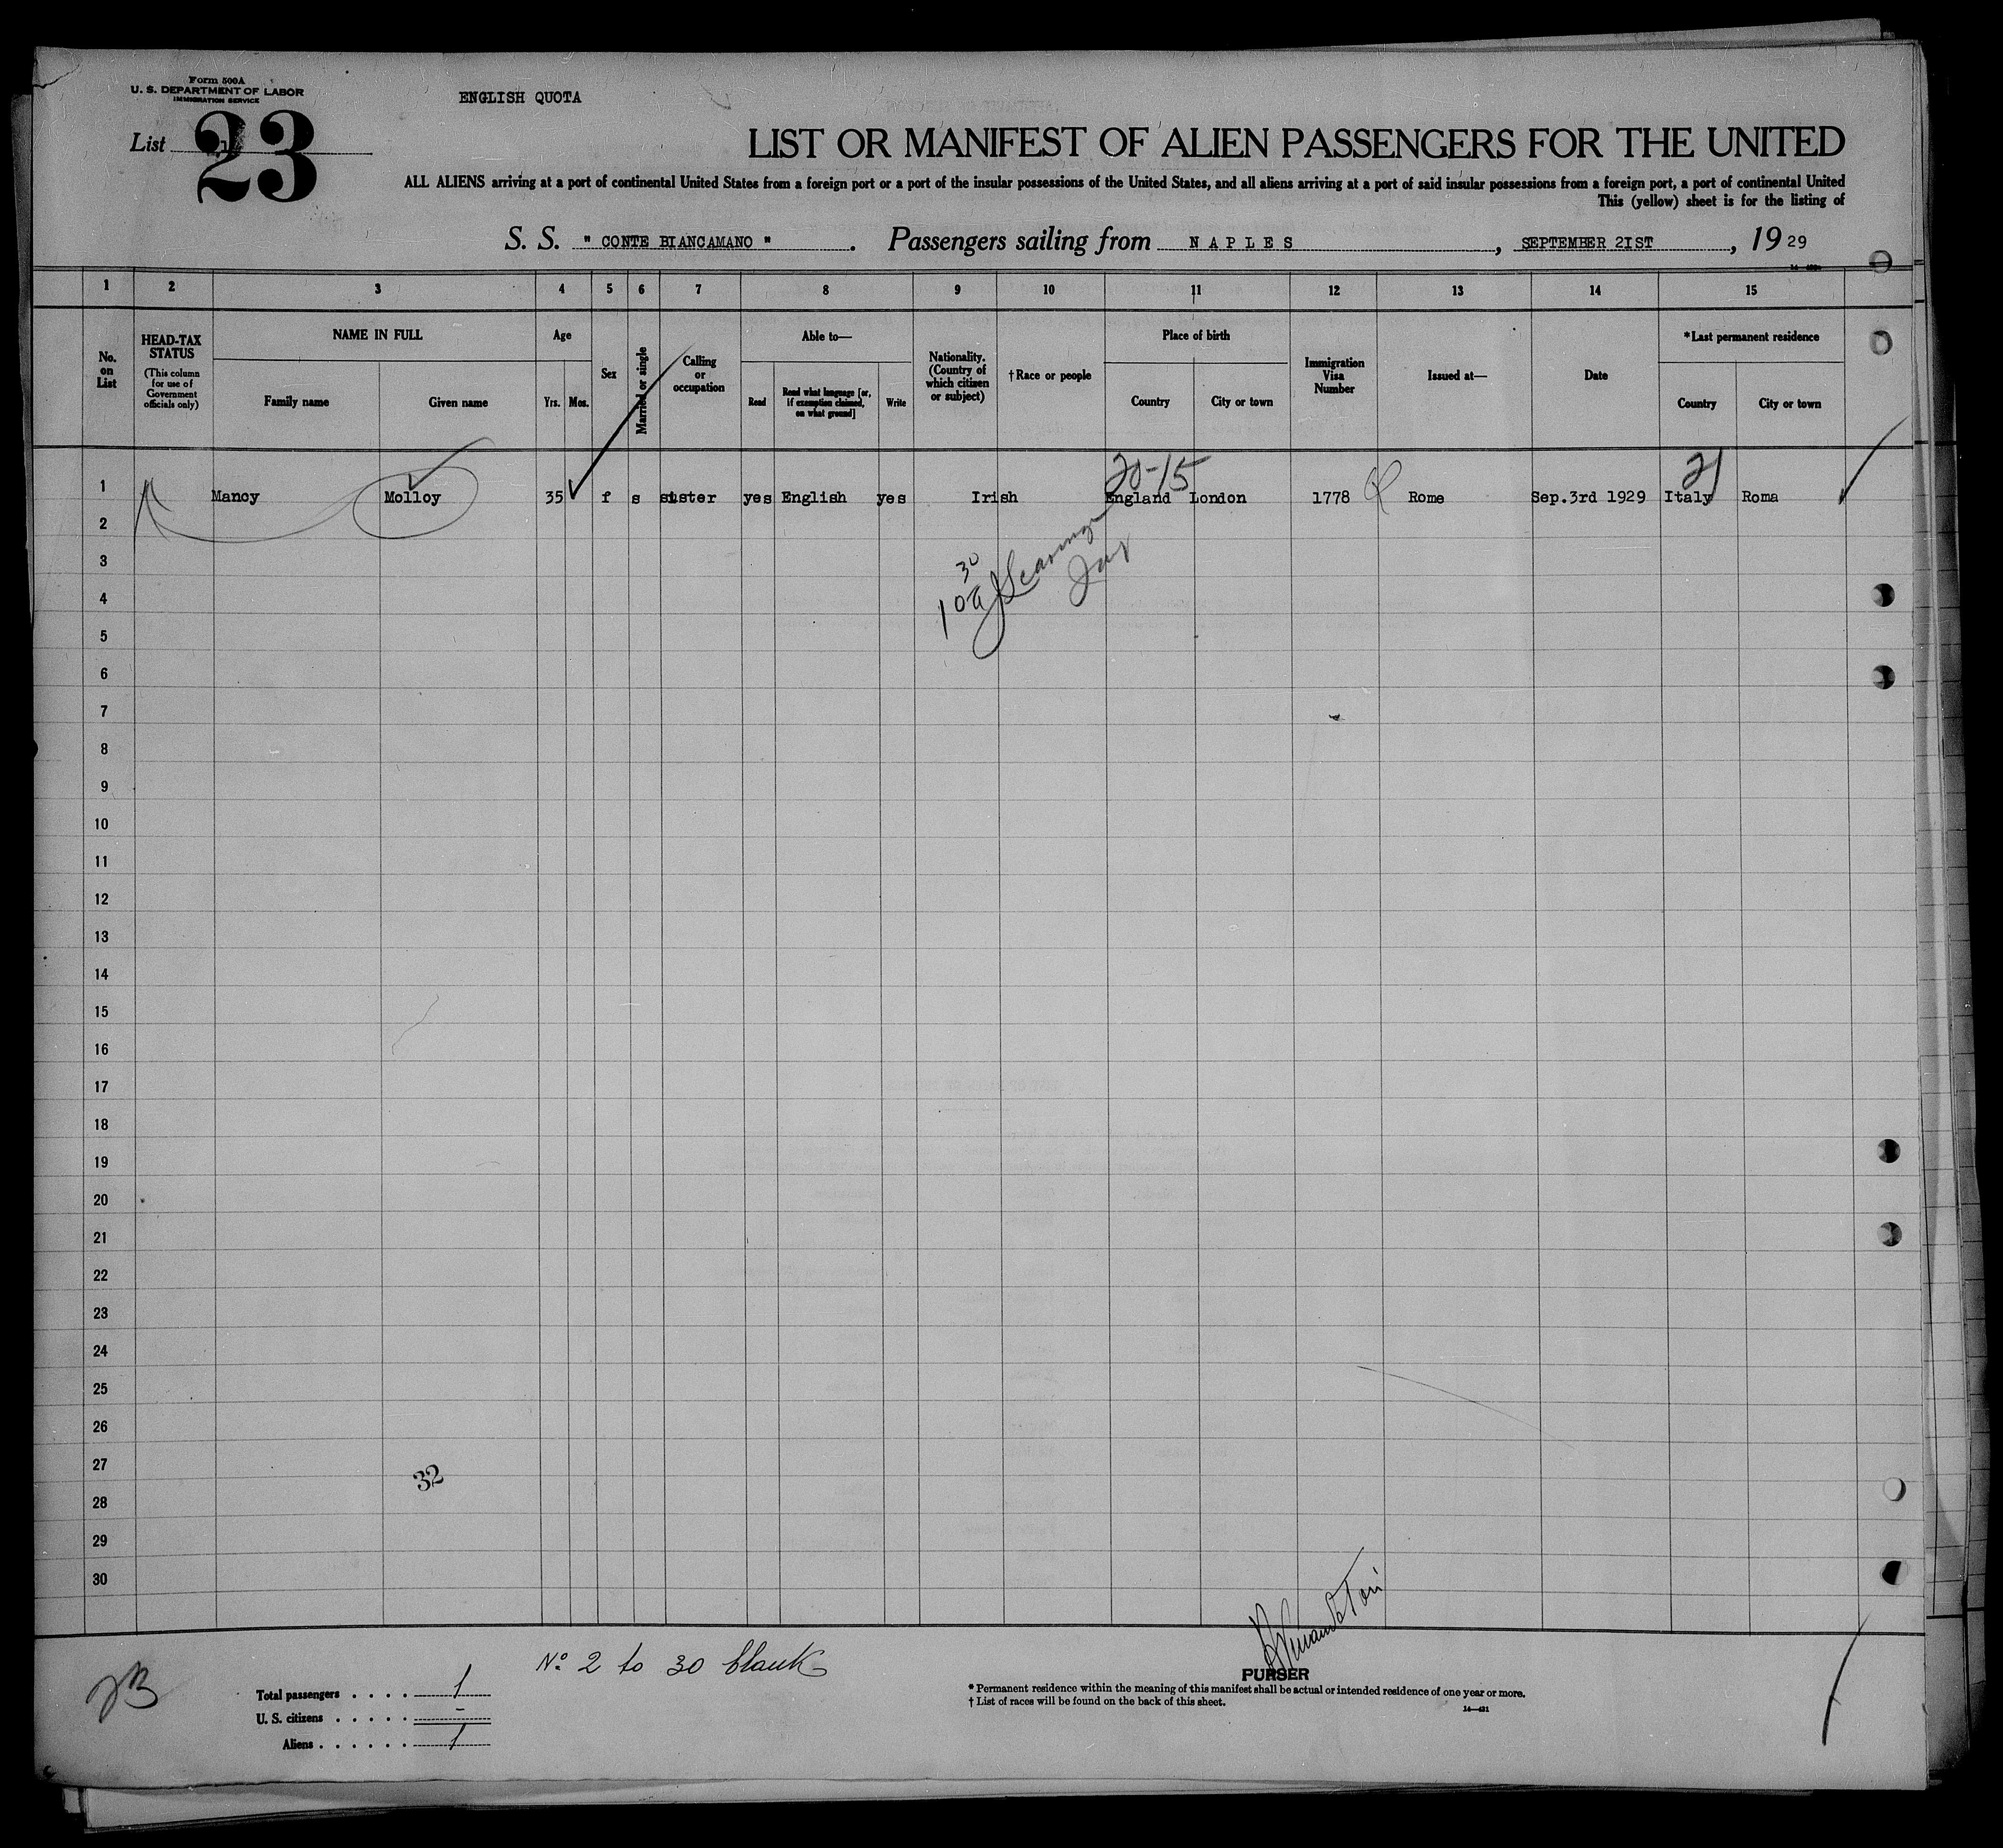 Form 500A
U. S. DEPARTMENT OF LABOR
IMMIGRATION SERVICE
ENGLISH QUOTA
List 23
LIST OR MANIFEST OF ALIEN PASSENGERS FOR THE UNITED
ALL ALIENS arriving at a port of continental United States from a foreign port or a port of the insular possessions of the United States, and all aliens arriving at a port of said insular possessions from a foreign port, a port of continental United
This (yellow) sheet is for the listing of
S. S. " CONTE BIANCAMANO " . Passengers sailing from N A P L E S , SEPTEMBER 21ST , 19 29
1 2 3 4 5 6 7 8 9 10 11 12 13 14 15
No. on List
HEAD-TAX STATUS
(This column for use of Government officials only)
NAME IN FULL
Family name Given name
Age
Yrs. Mos.
Sex
Married or single
Calling or occupation
Able to—
Read
Read what language [or, if exemption claimed, on what ground]
Write
Nationality. (Country of which citizen or subject)
†Race or people
Place of birth
Country City or town
Immigration Visa Number
Issued at—
Date
*Last permanent residence
Country City or town
20-15 21
1 Mancy Molloy 35 f s sister yes English yes Irish England London 1778 Rome Sep.3rd 1929 Italy Roma
2
3
30
4
10a
5
6
7
8
9
10
11
12
13
14
15
16
17
18
19
20
21
22
23
24
25
26
27
32
28
29
30
No. 2 to 30 blank
PURSER
Total passengers . . . . 1
U. S. citizens . . . . . -
Aliens . . . . . . 1
* Permanent residence within the meaning of this manifest shall be actual or intended residence of one year or more.
† List of races will be found on the back of this sheet.
14—431